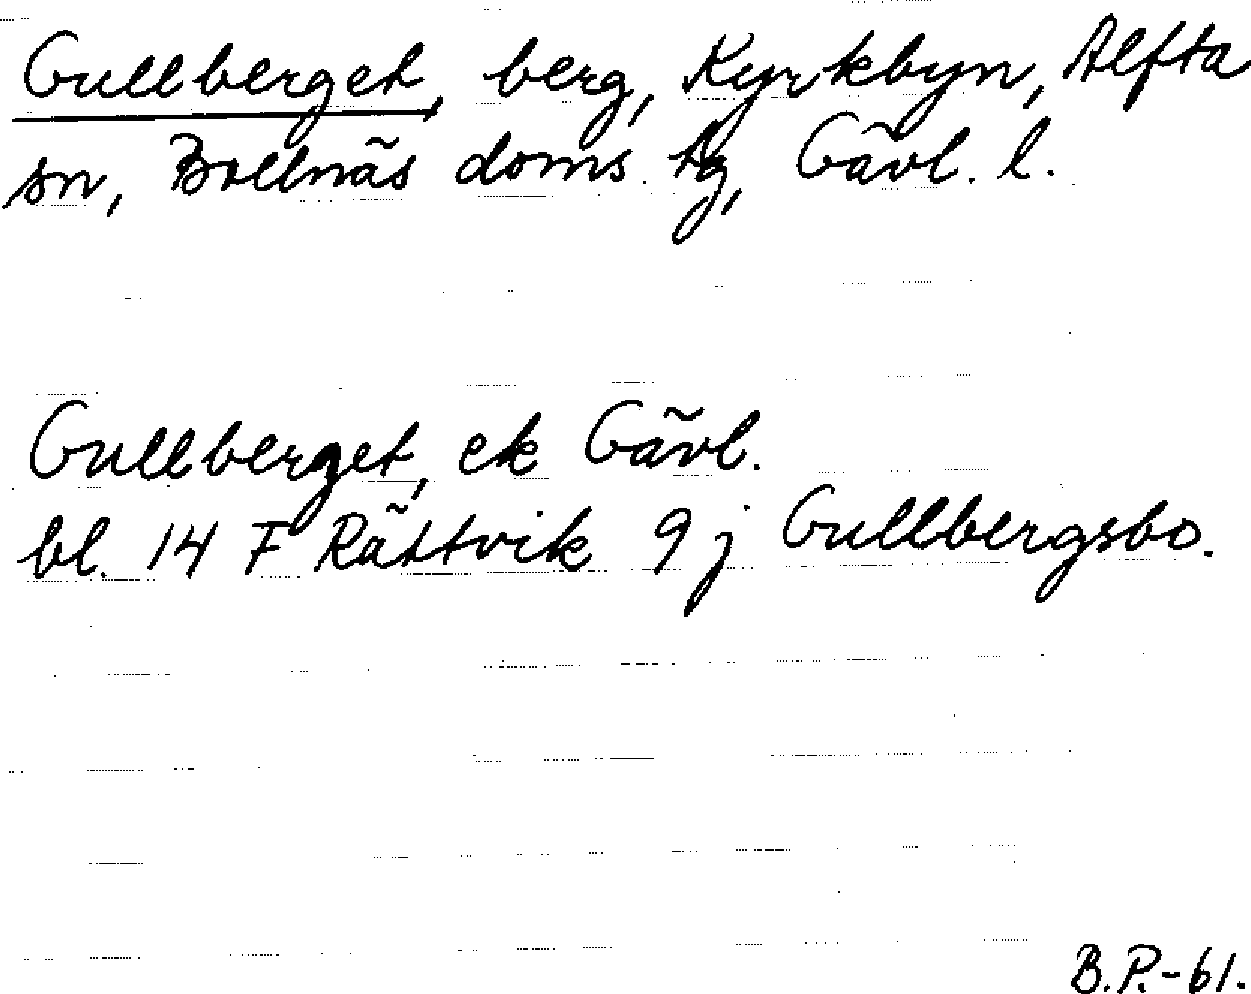 Gullberget, berg, Kyrkbyn, Alfta
sn, Bollnäs doms. tg, Gävl. l.
Gullberget, ek Gävl.
bl. 14 F Rättvik 9 j Gullbergsbo.
B.P.-61.